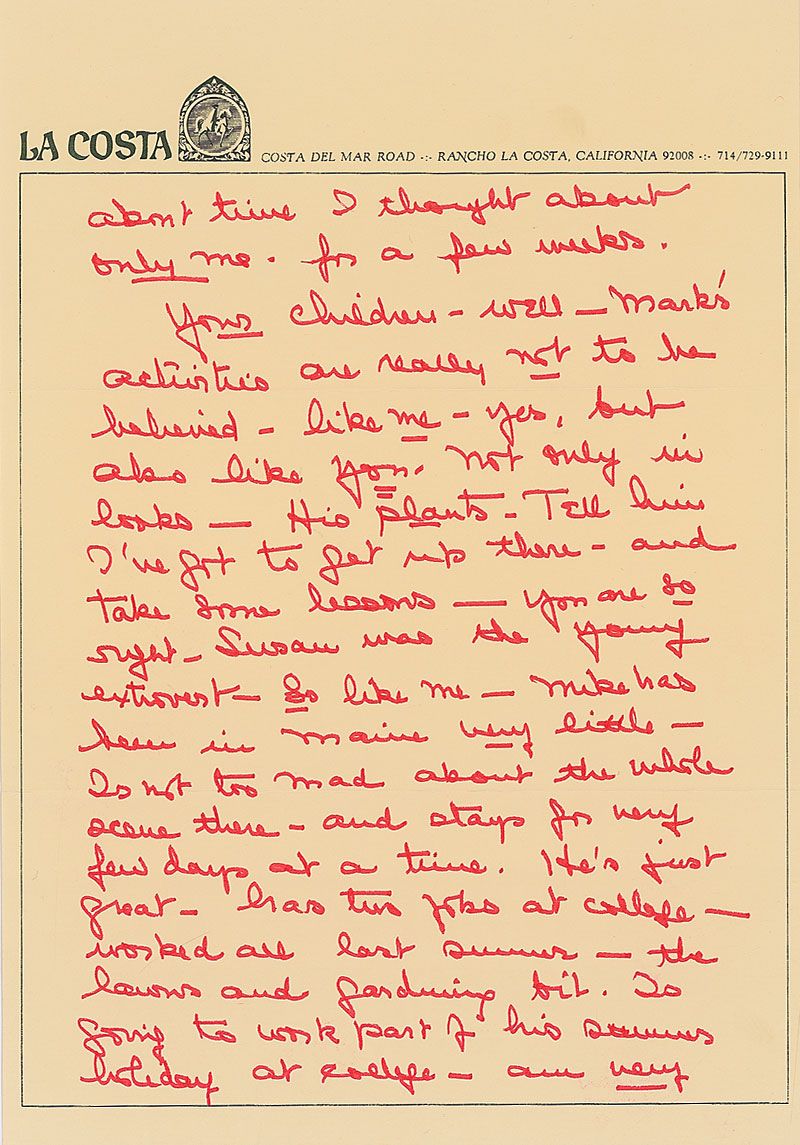 LA COSTA
COSTA DEL MAR ROAD -:- RANCHO LA COSTA, CALIFORNIA 92008 -:- 714/729-9111
about time I thought about
only me. for a few weeks.
Your children - well - Mark's
activities are really not to be
believed - like me - yes, but
also like you. Not only in
looks — His plants - Tell him
I've got to get up there - and
take some lessons — You are so
right - Susan was the young
extrovert - So like me - Mike has
been in Maine very little -
Is not too mad about the whole
scene there - and stays for very
few days at a time. He's just
great - has two jobs at college —
worked all last summer — the
lawns and gardening bit. Is
going to work part of his summer
holiday at college - am very